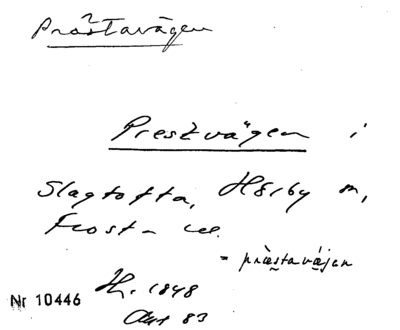 Prästavägen
Prestvägen i
Slagtofta, Hörby sn,
Frosta
= prästavägen
H. 1848
Nr 10446
83